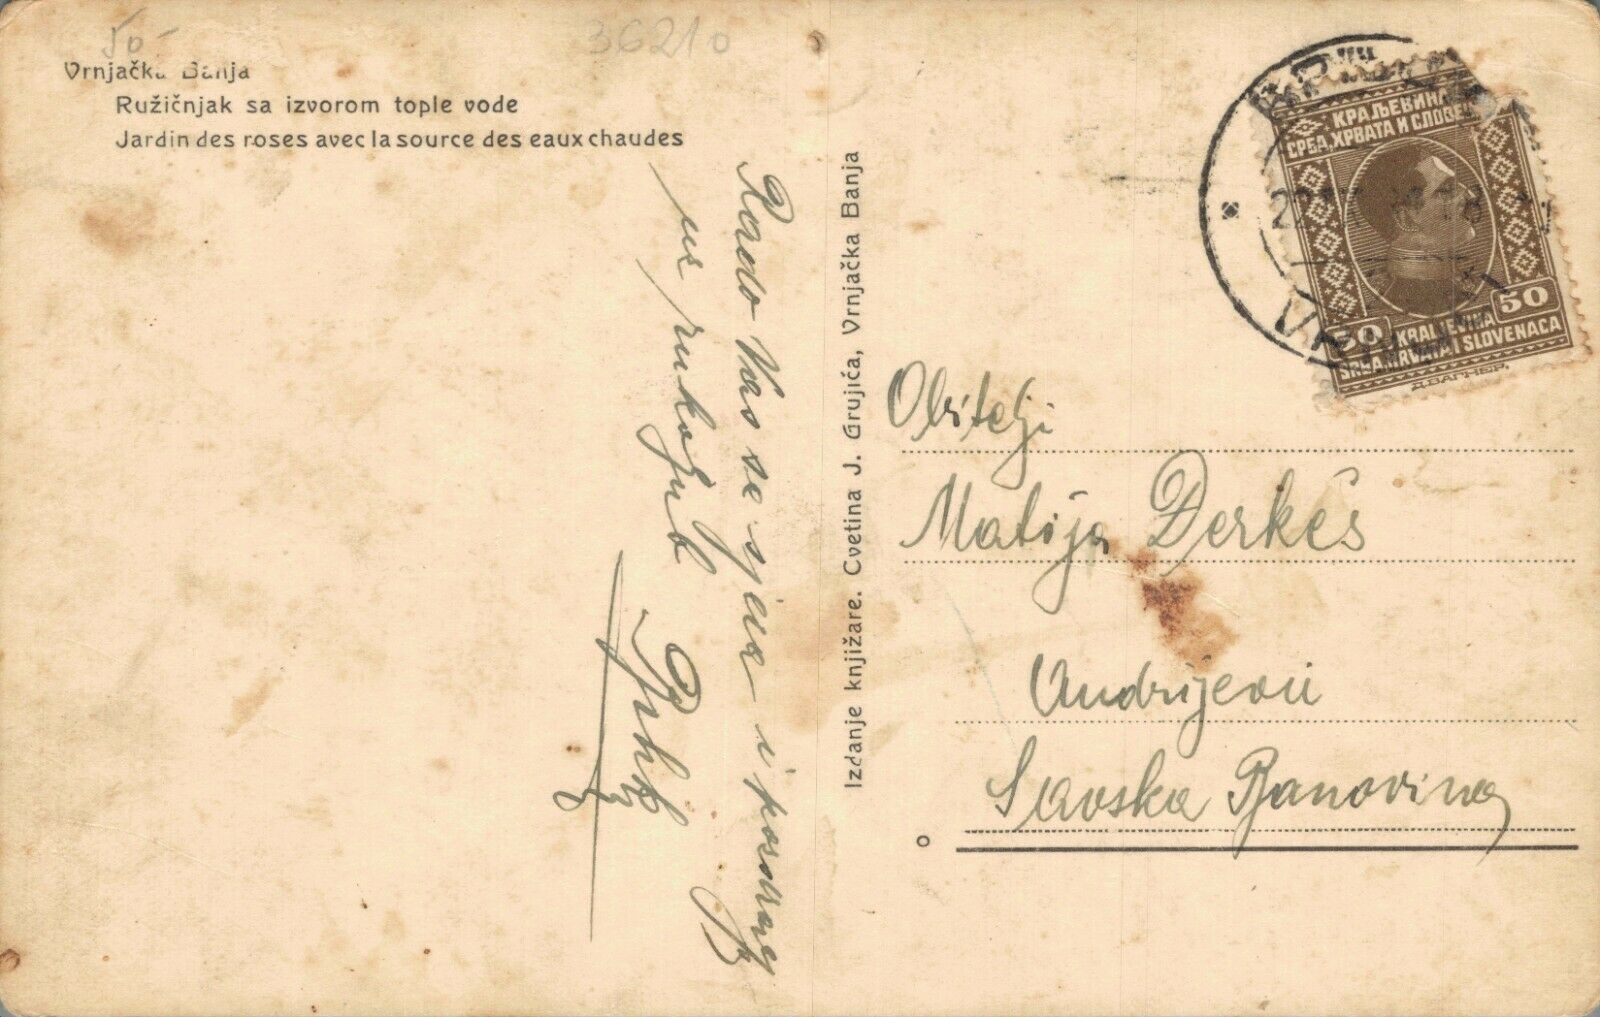 50-
36210
Vrnjačka Banja
Ružičnjak sa izvorom tople vode
Jardin des roses avec la source des eaux chaudes
Rado Vas se sjeća i pozdrav
uz rukoljub
Izdanje knjižare. Cvetina J. Grujića, Vrnjačka Banja
КРАЉЕВИНА
СРБА, ХРВАТА И СЛОВЕН
50 50
KRALJEVINA
SRBA, HRVATA I SLOVENACA
Д. ВАГНЕР.
Obitelji
Matija Đerkes
Andrijevci
Savska Banovina